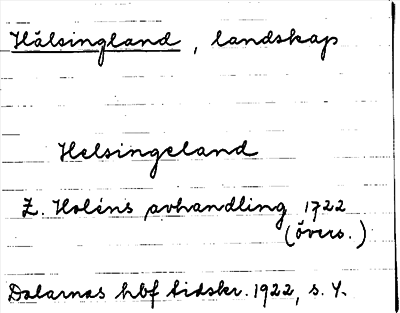 Hälsingland, landskap
Helsingeland
Z. Holéns avhandling 1722
(övers.)
Dalarnas hbf tidskr. 1922, s. 4.